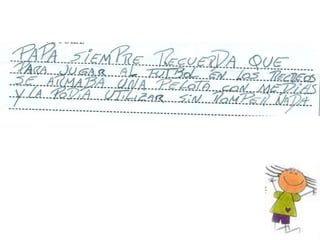 PAPA SIEMPRE RECUERDA QUE
PARA JUGAR AL FUTBOL EN LOS RECREOS
SE ARMABA UNA PELOTA CON MEDIAS
Y LA PODIA UTILIZAR SIN ROMPER NADA